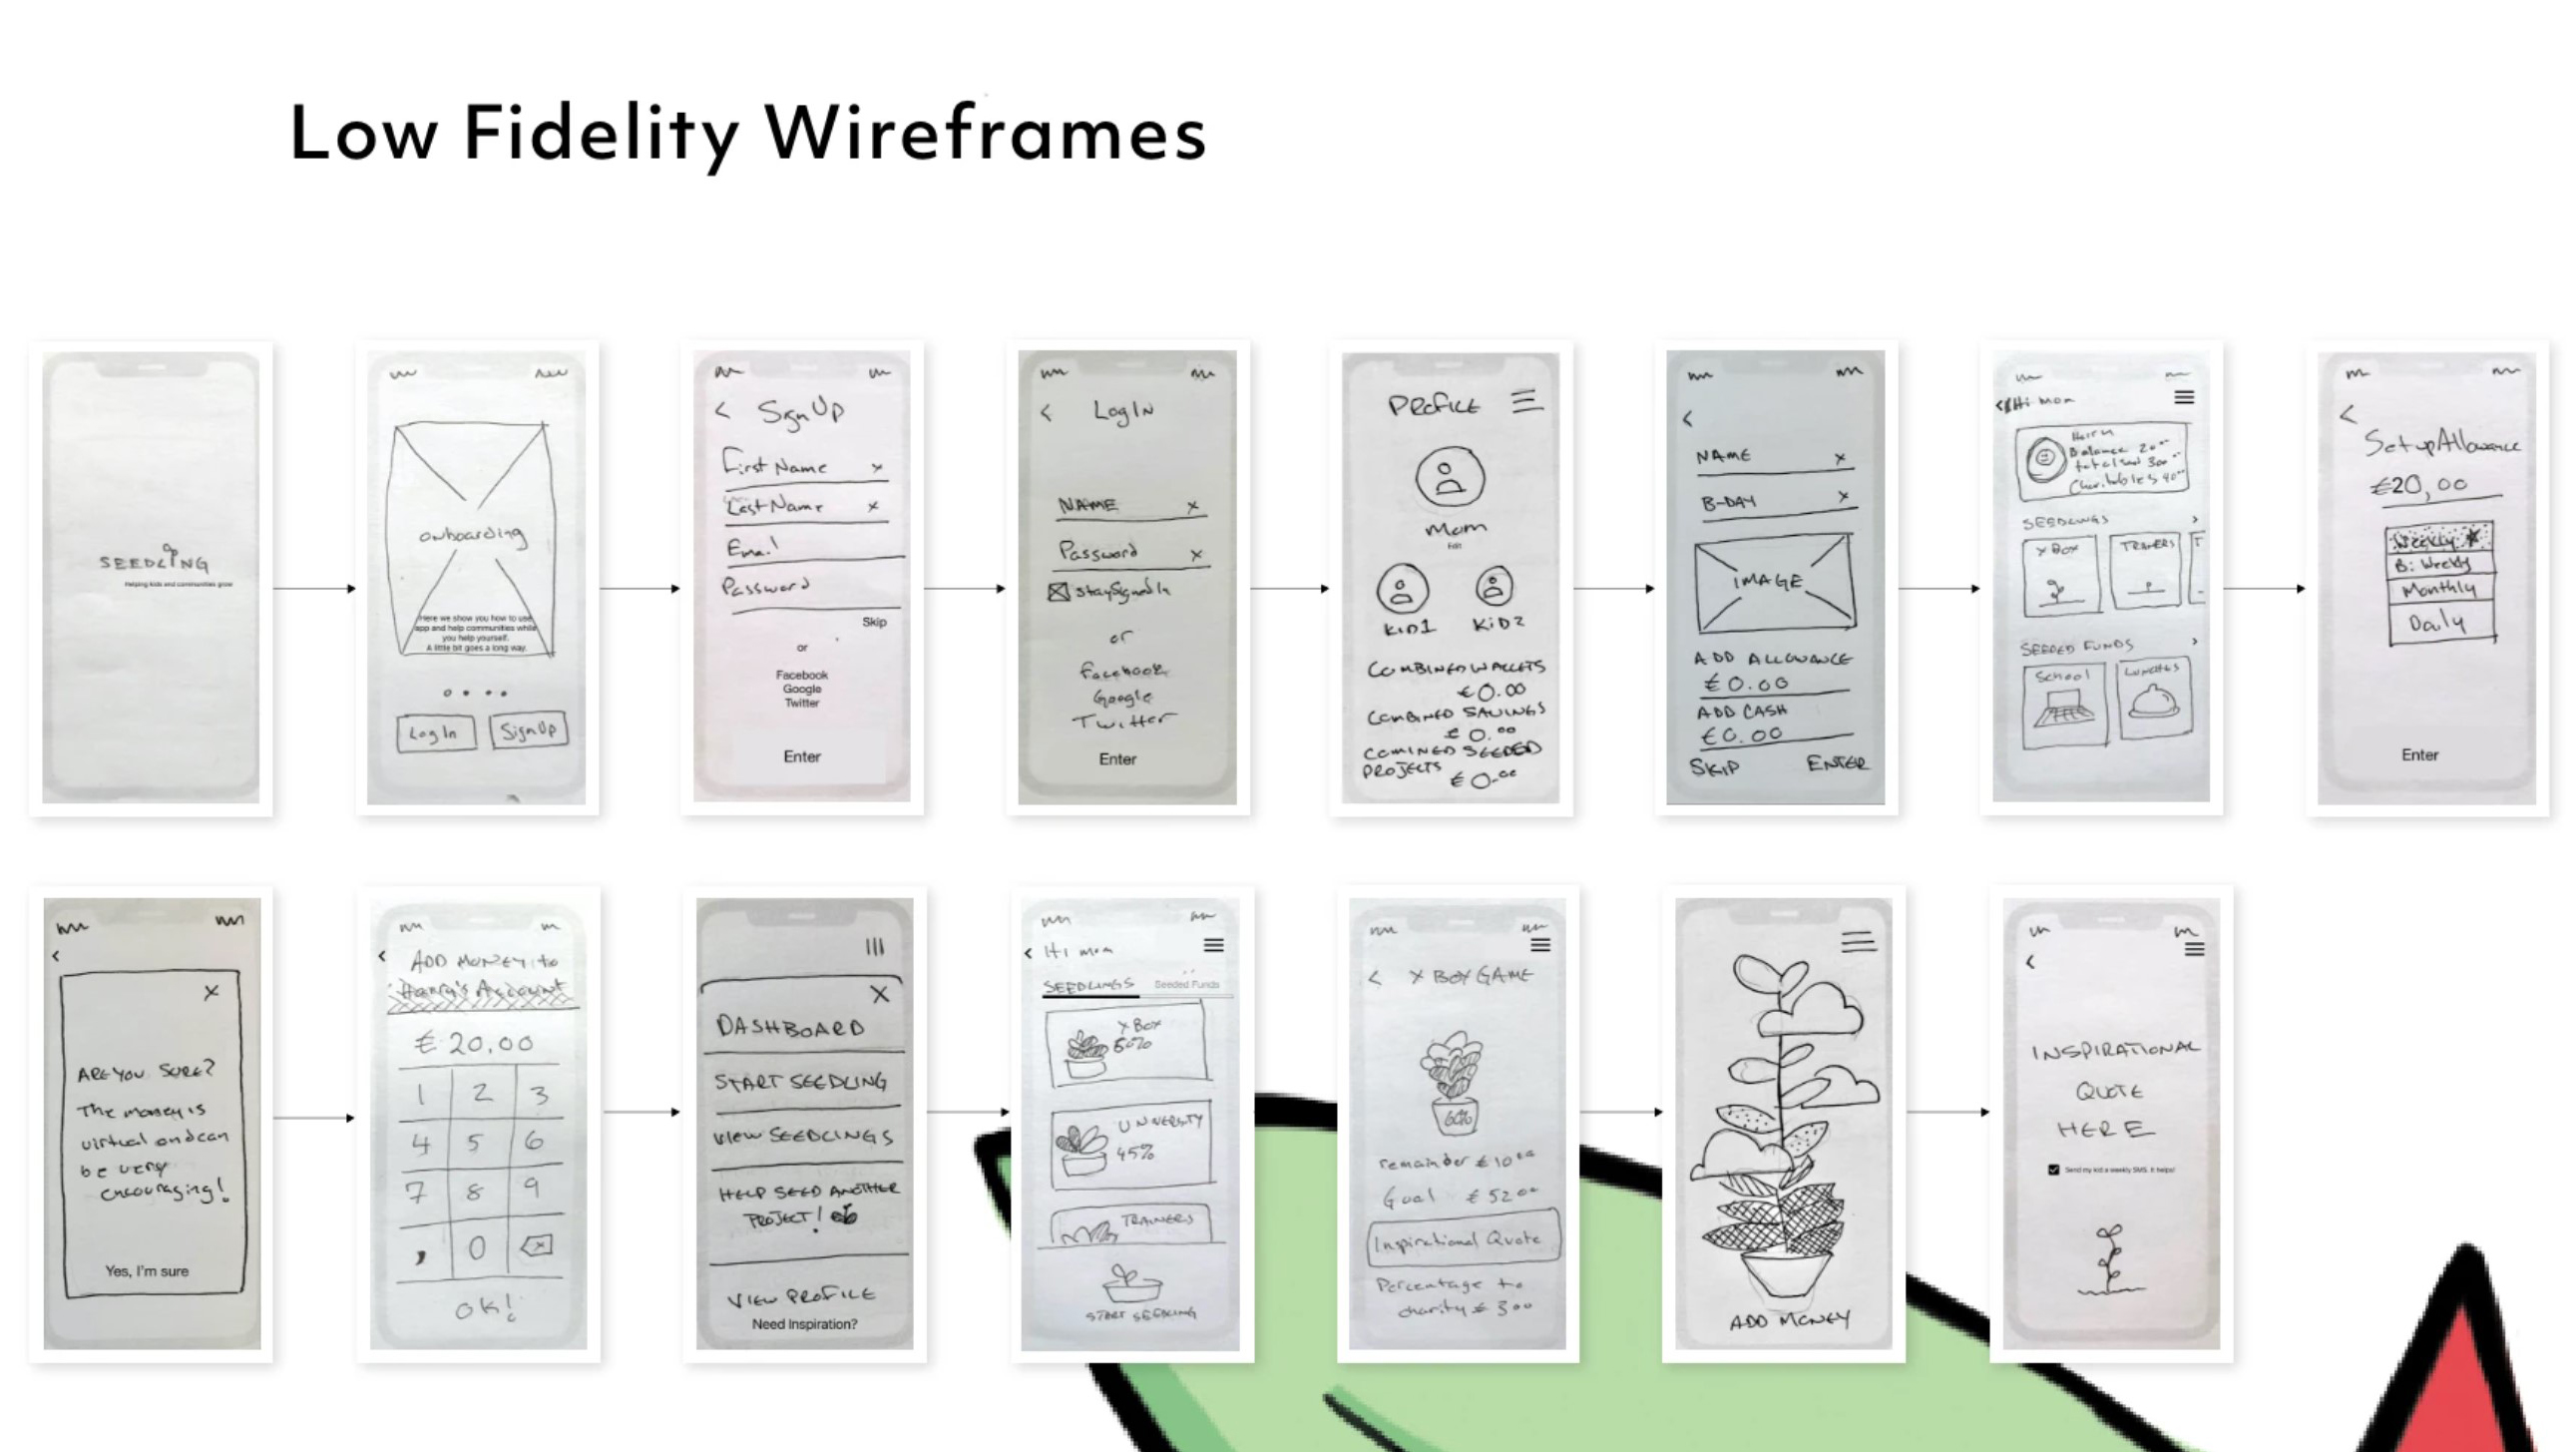 Low Fidelity Wireframes
SEEDLING
Helping kids and communities grow
onboarding
Here we show you how to use
app and help communities while
you help yourself.
A little bit goes a long way.
Log In
Sign Up
< Sign Up
First Name x
Last Name x
Email
Password
Skip
or
Facebook
Google
Twitter
Enter
< Log In
NAME x
Password x
Stay Signed In
or
Facebook
Google
Twitter
Enter
PROFILE
Mom
Edit
KID1 KID2
COMBINED WALLETS
€0.00
COMBINED SAVINGS
€0.00
COMINED SEEDED
PROJECTS
€0.00
<
NAME x
B-DAY x
IMAGE
ADD ALLOWANCE
€0.00
ADD CASH
€0.00
SKIP ENTER
< Hi mom
Balance 20
SEEDLINGS >
X Box
TRAINERS
T
SEEDED FUNDS >
School
Lunches
<
Set up Allowance
€20,00
Weekly
Bi Weekly
Monthly
Daily
Enter
<
X
ARE YOU SURE?
The money is
virtual and can
be very
encouraging!
Yes, I'm sure
<
ADD MONEY to
Harry's Account
€ 20.00
1 2 3
4 5 6
7 8 9
, 0 x
OK!
X
DASHBOARD
START SEEDLING
VIEW SEEDLINGS
HELP SEED ANOTHER
PROJECT!
VIEW PROFILE
Need Inspiration?
< Hi mom
SEEDLINGS Seeded Funds
X Box
60%
UNIVERSITY
45%
TRAINERS
START SEEDLING
< X BOX GAME
60%
remainder €10.00
Goal €52.00
Inspirational Quote
Percentage to
charity € 3.00
ADD MONEY
<
INSPIRATIONAL
QUOTE
HERE
Send my kid a weekly SMS. It helps!